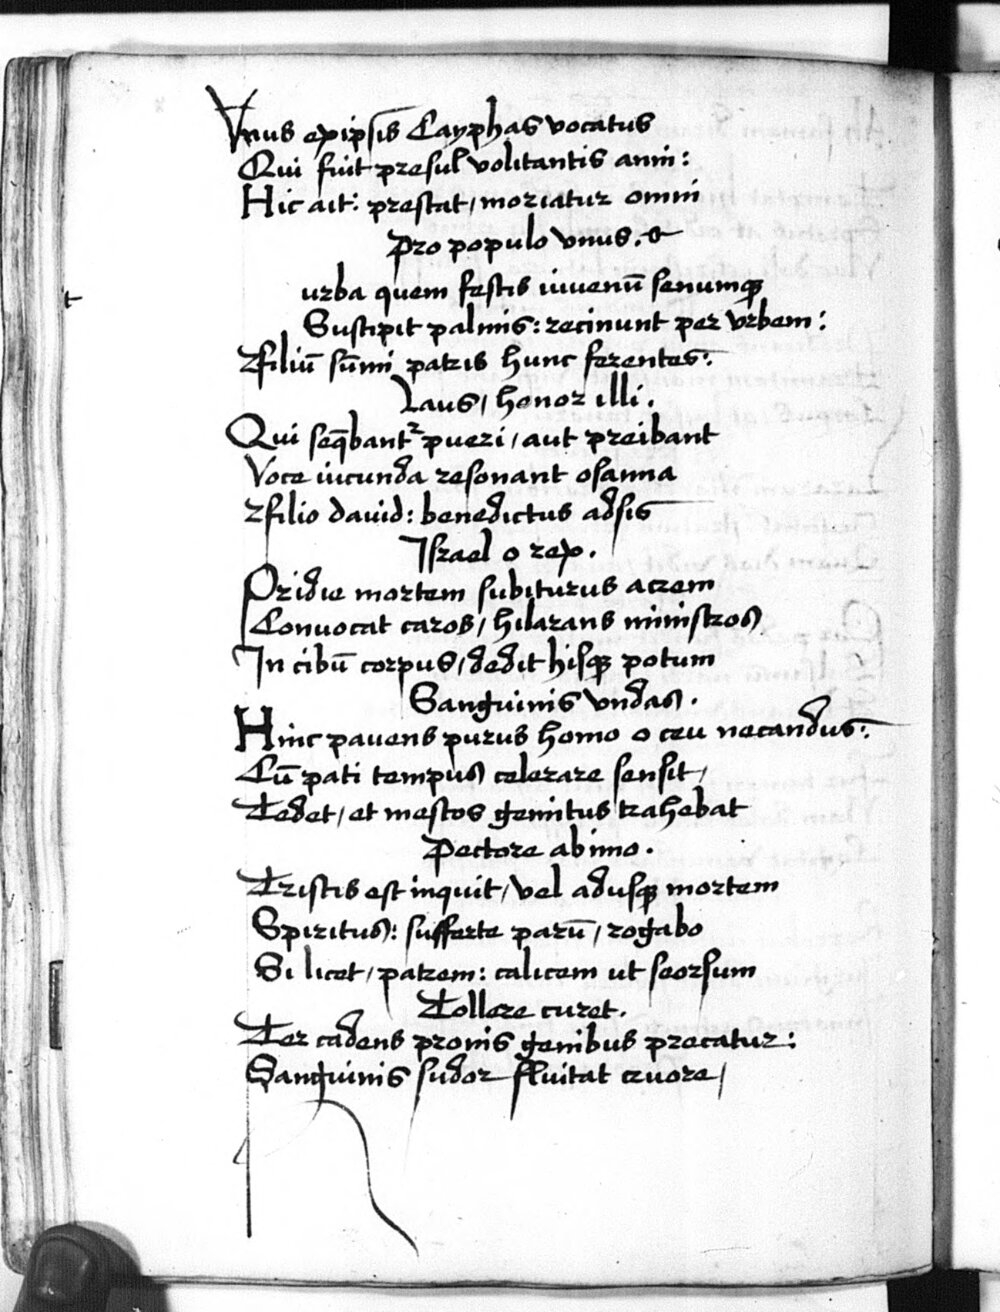 Vnus ex ipsis Cayphas vocatus
Qui fuit presul volitantis anni:
Hic ait: prestat, moriatur omni
Pro populo vnus. et
t
urba quem festis iuuenū senumqꝫ
Suscipit palmis: recinunt per vrbem:
Filiū sūmi patris hunc ferentes:
Laus, honor illi.
Qui seqͣbantᷣ pueri, aut preibant
Voce iucunda resonant osanna
Filio dauid: benedictus adsis
Israel o rex.
Pridie mortem subiturus acrem
Conuocat caros, hilarans ministros
In cibū corpus, dedit hisqꝫ potum
Sanguinis vndas.
Hinc pauens purus homo o ceu necandus:
Cū pati tempus celerare sensit,
Tedet, et mestos gemitus trahebat
Pectore ab imo.
Tristis est inquit, vel adusqꝫ mortem
Spiritus: sufferte parū, rogabo
Si licet, patrem: calicem ut seorsum
Tollere curet.
Ter cadens pronis genibus precatur:
Sanguinis sudor fluitat cruore,